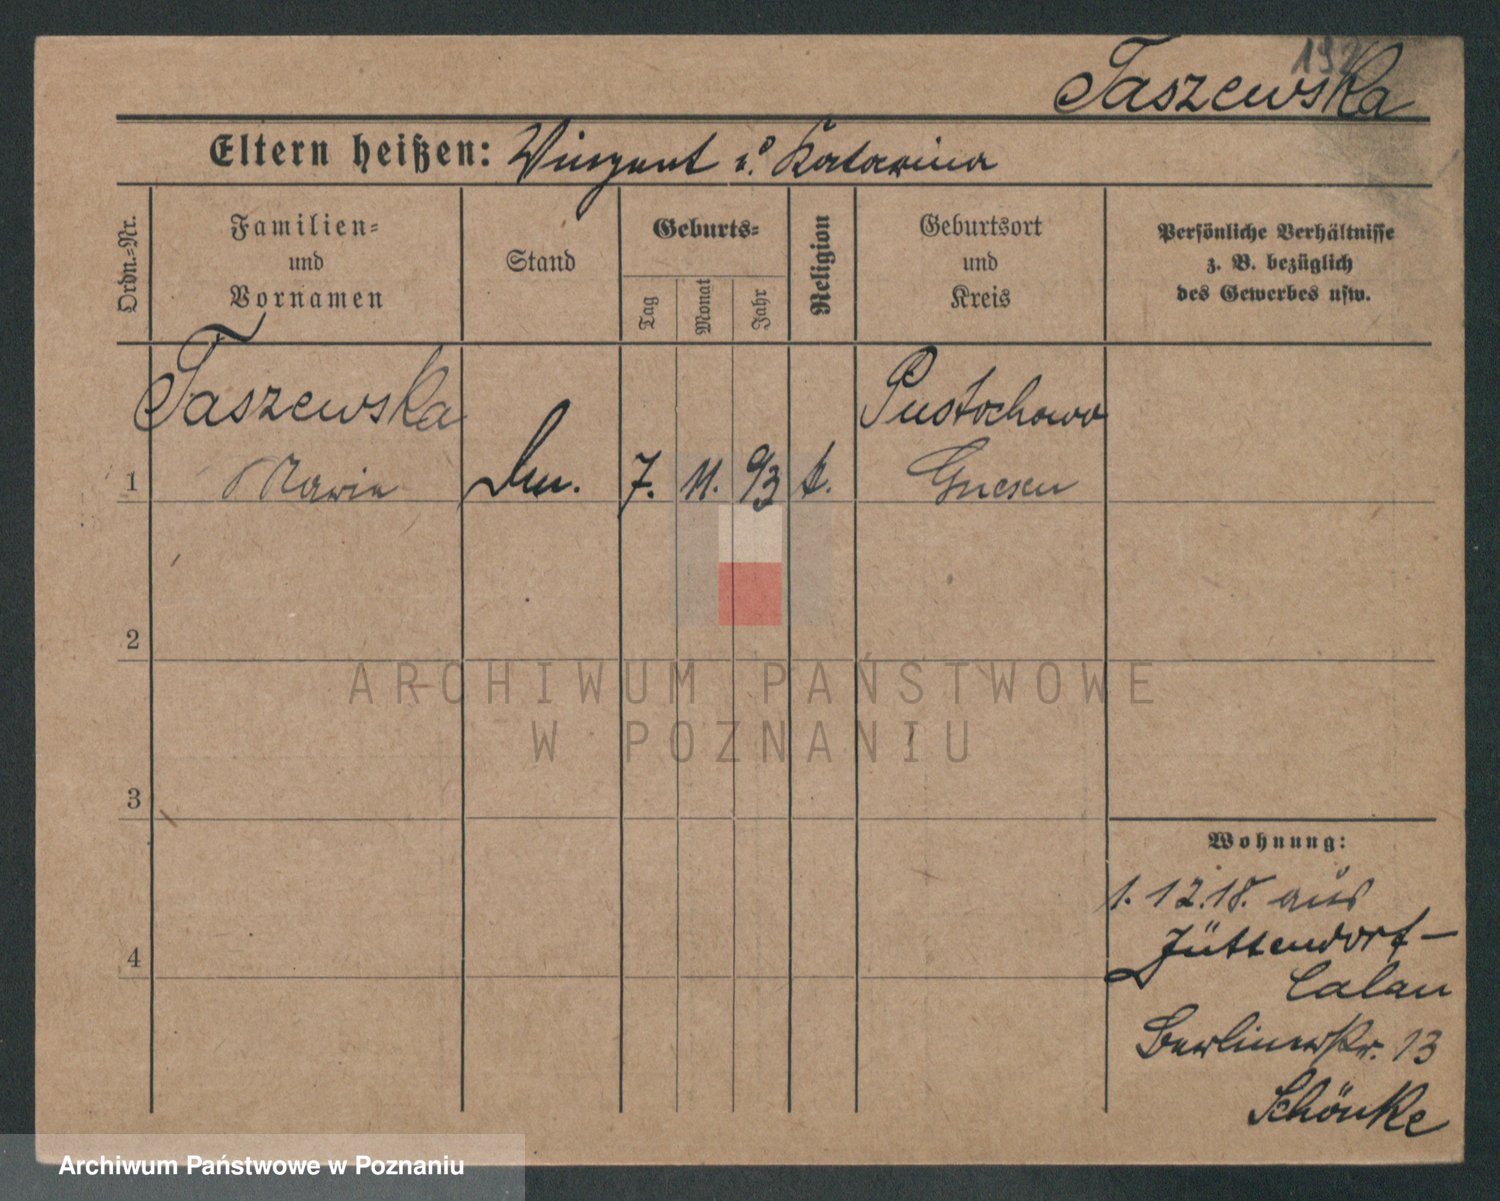 192
Taszewska
Eltern heißen: Vinzent u. Katarina
Ordn.-Nr.
Familien-
und
Vornamen
Stand
Geburts-
Tag
Monat
Jahr
Religion
Geburtsort
und
Kreis
Persönliche Verhältnisse
z. B. bezüglich
des Gewerbes usw.
Taszewska
Pustochowo
1 Marie 7. 11. 93 k. Gnesen
2
ARCHIWUM PAŃSTWOWE
W POZNANIU
3
Wohnung:
1. 12.18. aus
Jüttendorf-
4
Calau
Berlinerstr. 13
Schönke
Archiwum Państwowe w Poznaniu